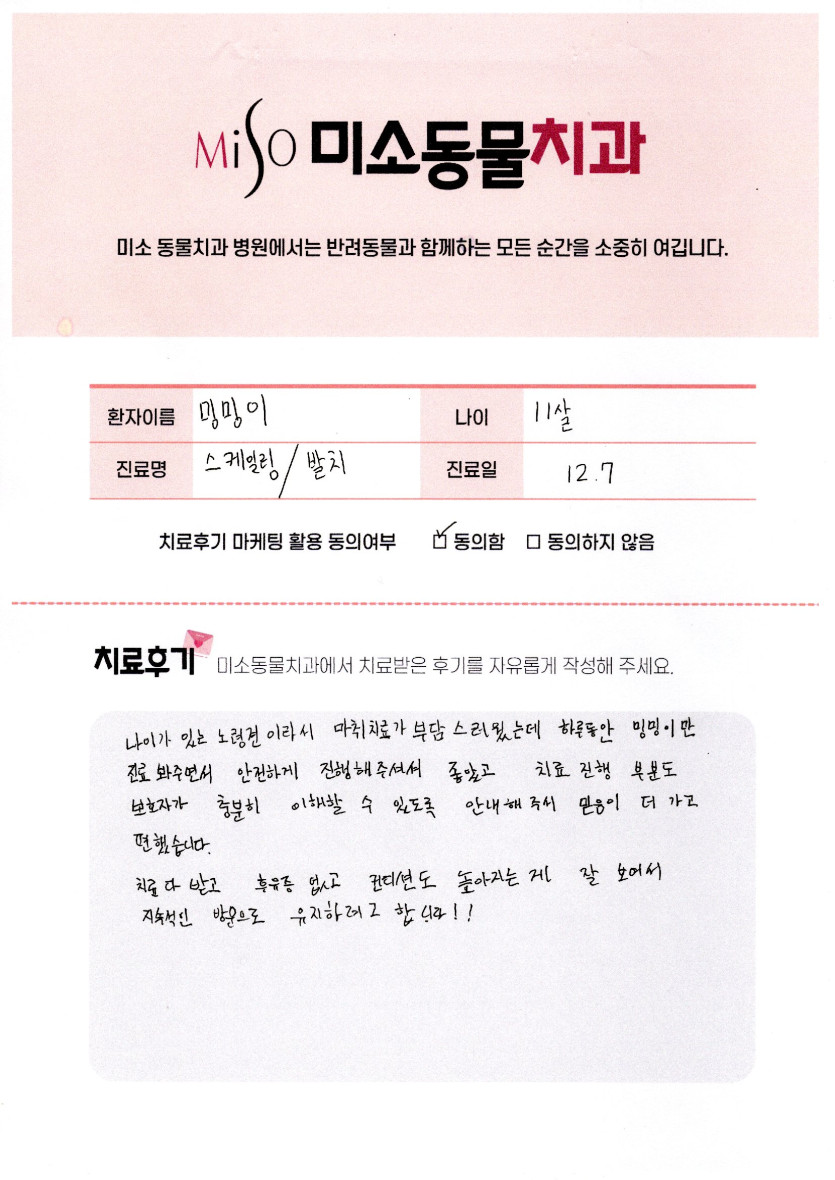 MiSO 미소동물치과
미소 동물치과 병원에서는 반려동물과 함께하는 모든 순간을 소중히 여깁니다.
환자이름 밍밍이 나이 11살
진료명 스케일링/발치 진료일 12.7
치료후기 마케팅 활용 동의여부 ☑ 동의함 □ 동의하지 않음
치료후기 미소동물치과에서 치료받은 후기를 자유롭게 작성해 주세요.
나이가 있는 노령견이라서 마취치료가 부담스러웠는데 하루동안 밍밍이만
진료 봐주면서 안전하게 진행해주셔서 좋았고 치료 진행 부분도
보호자가 충분히 이해할 수 있도록 안내해 주셔 믿음이 더 가고
편했습니다.
치료 다 받고 후유증 없고 컨디션도 높아지는 게 잘 보여서
지속적인 방문으로 유지하려고 합니다!!